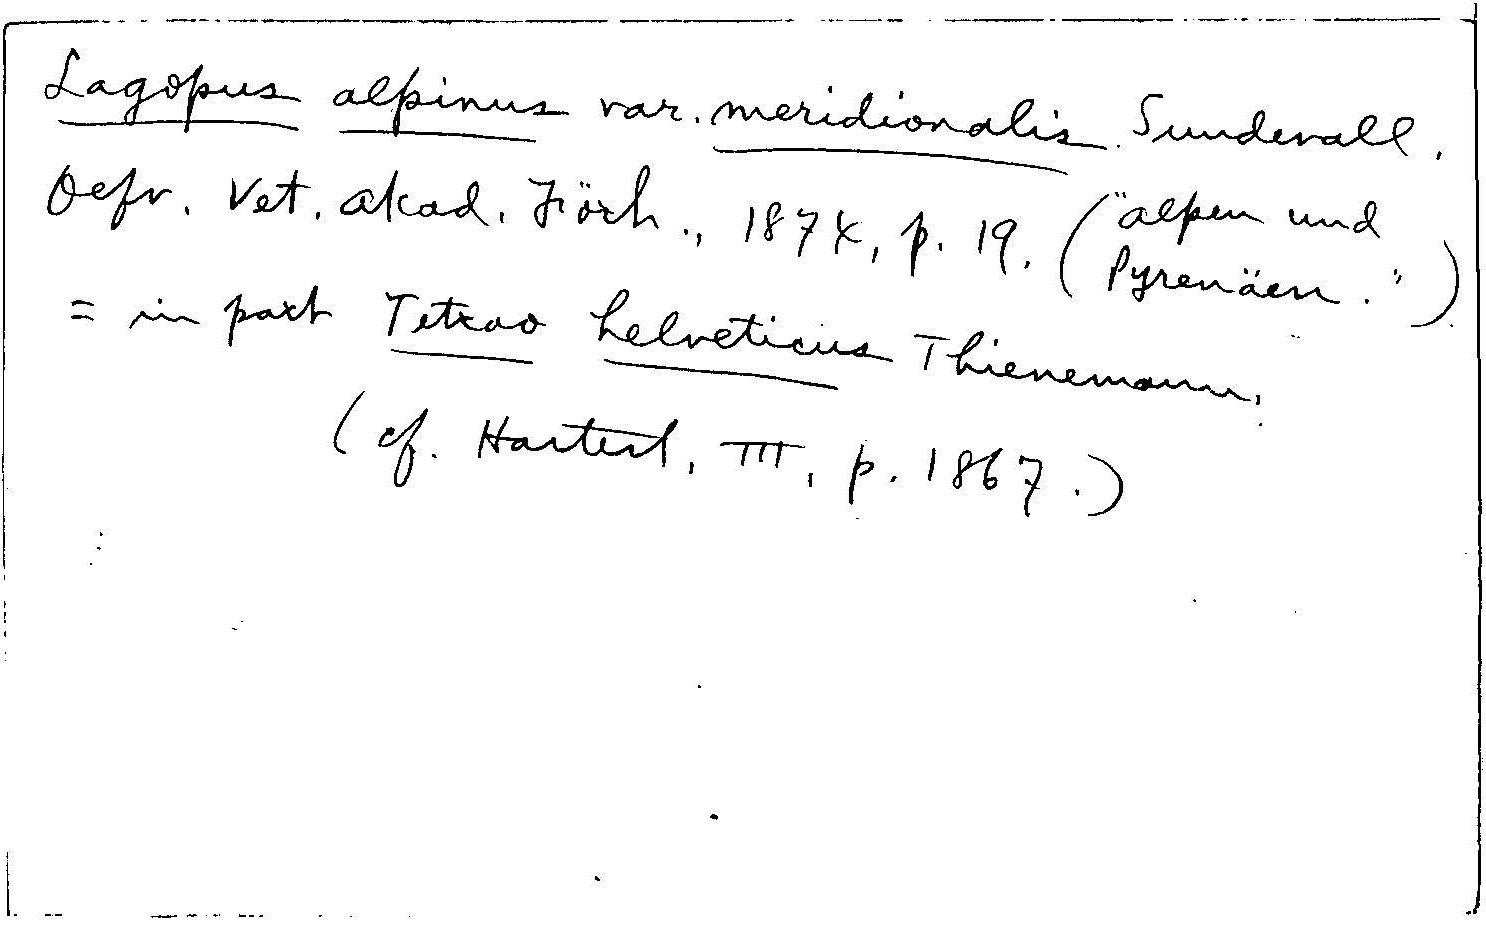 Lagopus alpinus var. meridionalis Sundevall.
Oefv. Vet. Akad. Förh., 1874, p. 19. ("Alpen und
Pyrenäen.")
= in part Tetrao helveticus Thienemann.
(cf. Hartert, III, p. 1867.)